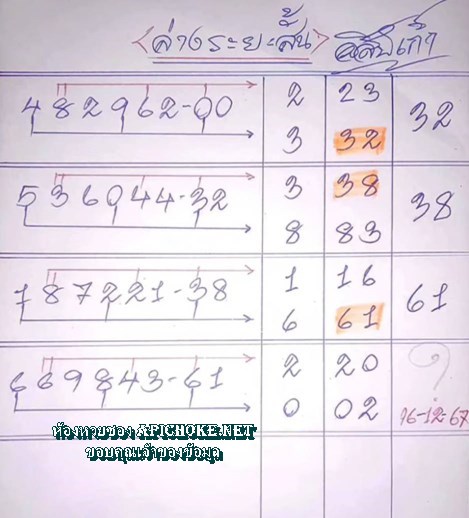 <ล่างระยะสั้น>
482962-00 2 23 32
3 32
536044-32 3 38 38
8 83
187221-38 1 16 61
6 61
669843-61 2 20 ?
0 02 16-12-67
ห้องหวยซอง APICHOKE.NET
ขอบคุณเจ้าของข้อมูล